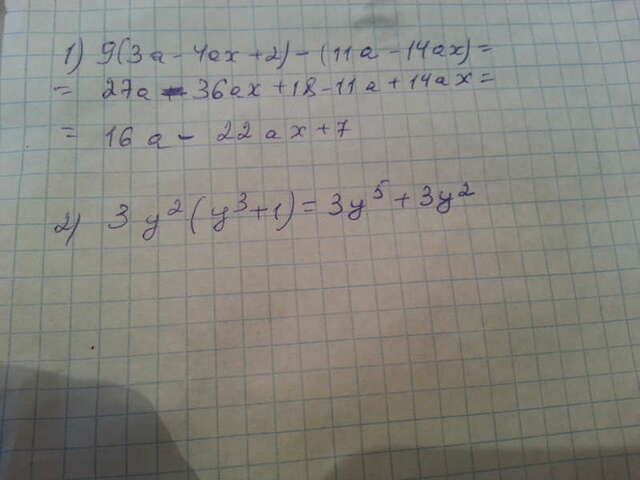 1) 9(3a - 4ax + 2) - (11a - 14ax) =
= 27a - 36ax + 18 - 11a + 14ax =
= 16a - 22ax + 7
2) 3y² (y³ + 1) = 3y⁵ + 3y²